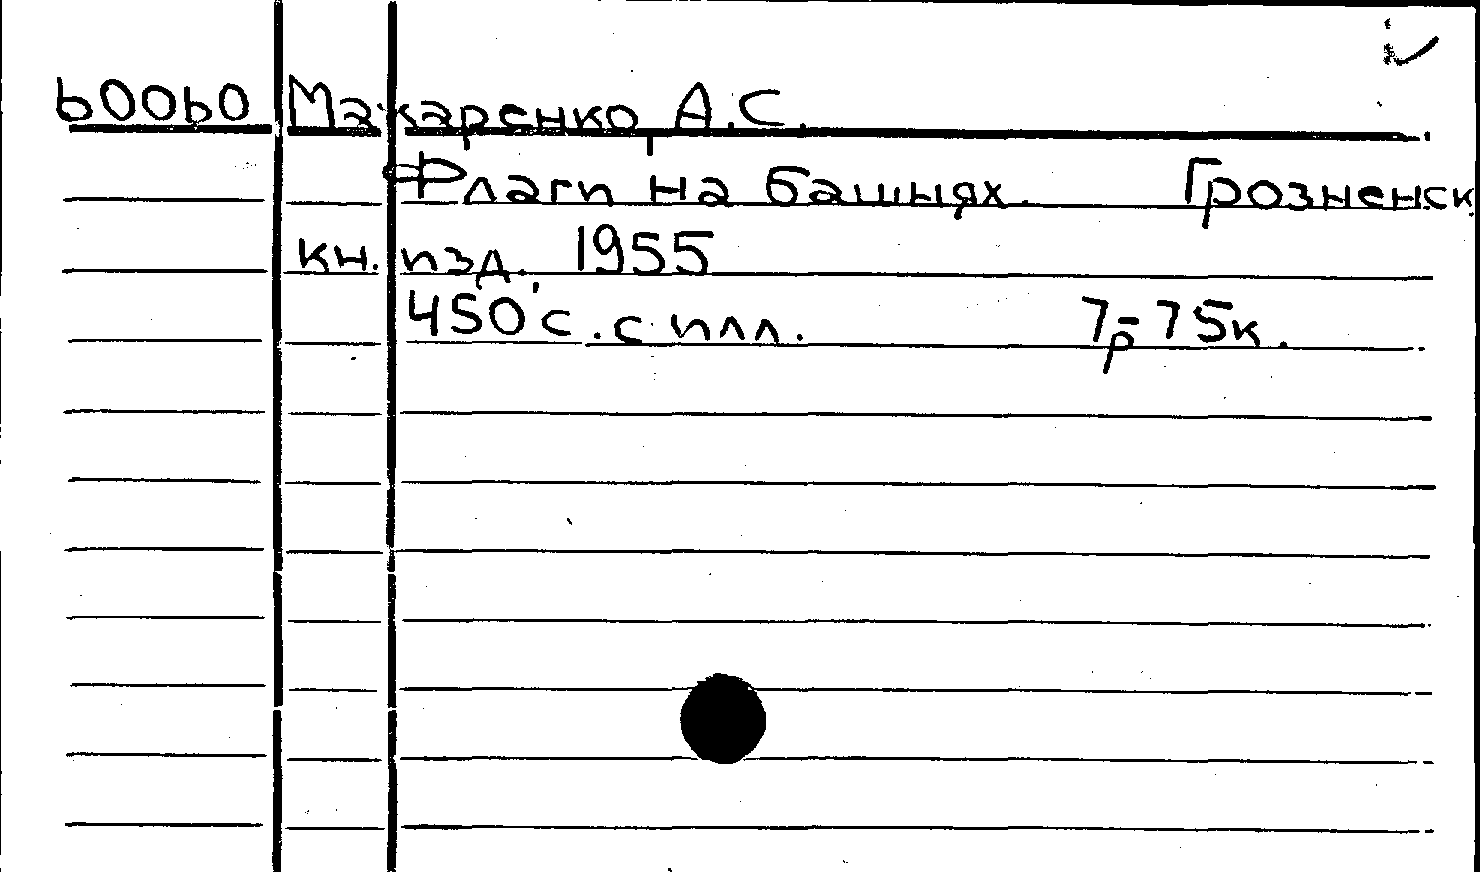 60060 Макаренко, А.С.
Флаги на башнях. Грозненск.
кн. изд. 1955
450 с. с илл. 7р-75к.